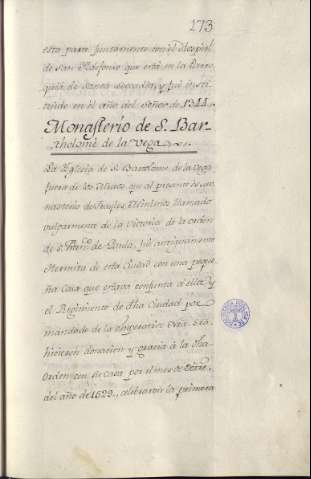 273
esta parte juntamente con el Hospital
de San Ildefonso que está en la Parro-
quia de Santa Leocadia, y fué insti-
tuido en el año del Señor de 1344.
Monasterio de S. Bar-
tholomé de la Vega
La Iglesia de S. Bartolomé de la Vega
fuera de los Muros, que al presente es mo-
nasterio de Frayles Minimos llamado
vulgarmente de la Victoria de la orden
de S. Fran.co de Paula, fue antiguamente
Hermita de esta Ciudad con una peque-
ña Casa que estava conjunta á ella, y
el Regimiento de dha Ciudad por
mandado de la
hicieron donacion y gracia á la dha
Orden, en su casa por el mes de
del año de 1529, celebraron la primera